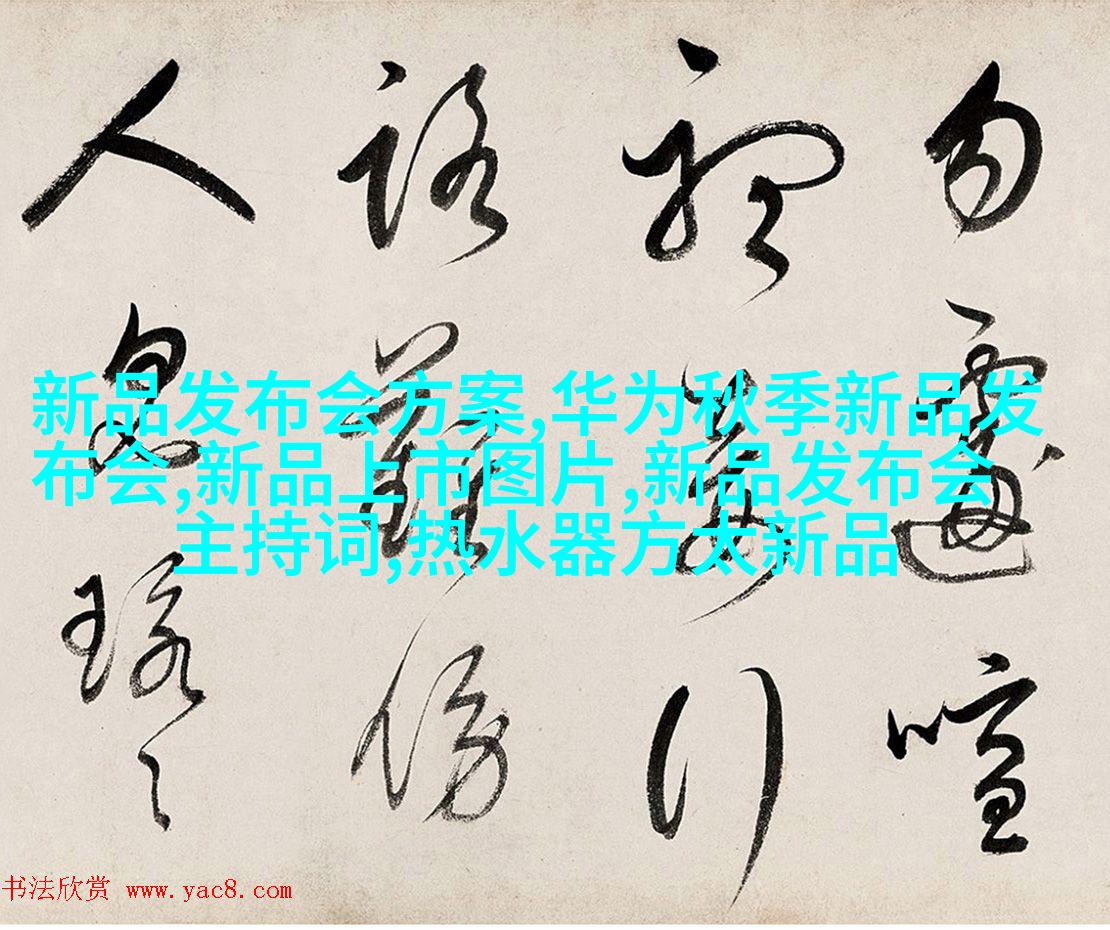 勿遽喧
行
路難傍
人
新品发布会方案,华为秋季新品发
布会,新品上市图片,新品发布会
主持词,热水器方太新品
书法欣赏 www.yac8.com